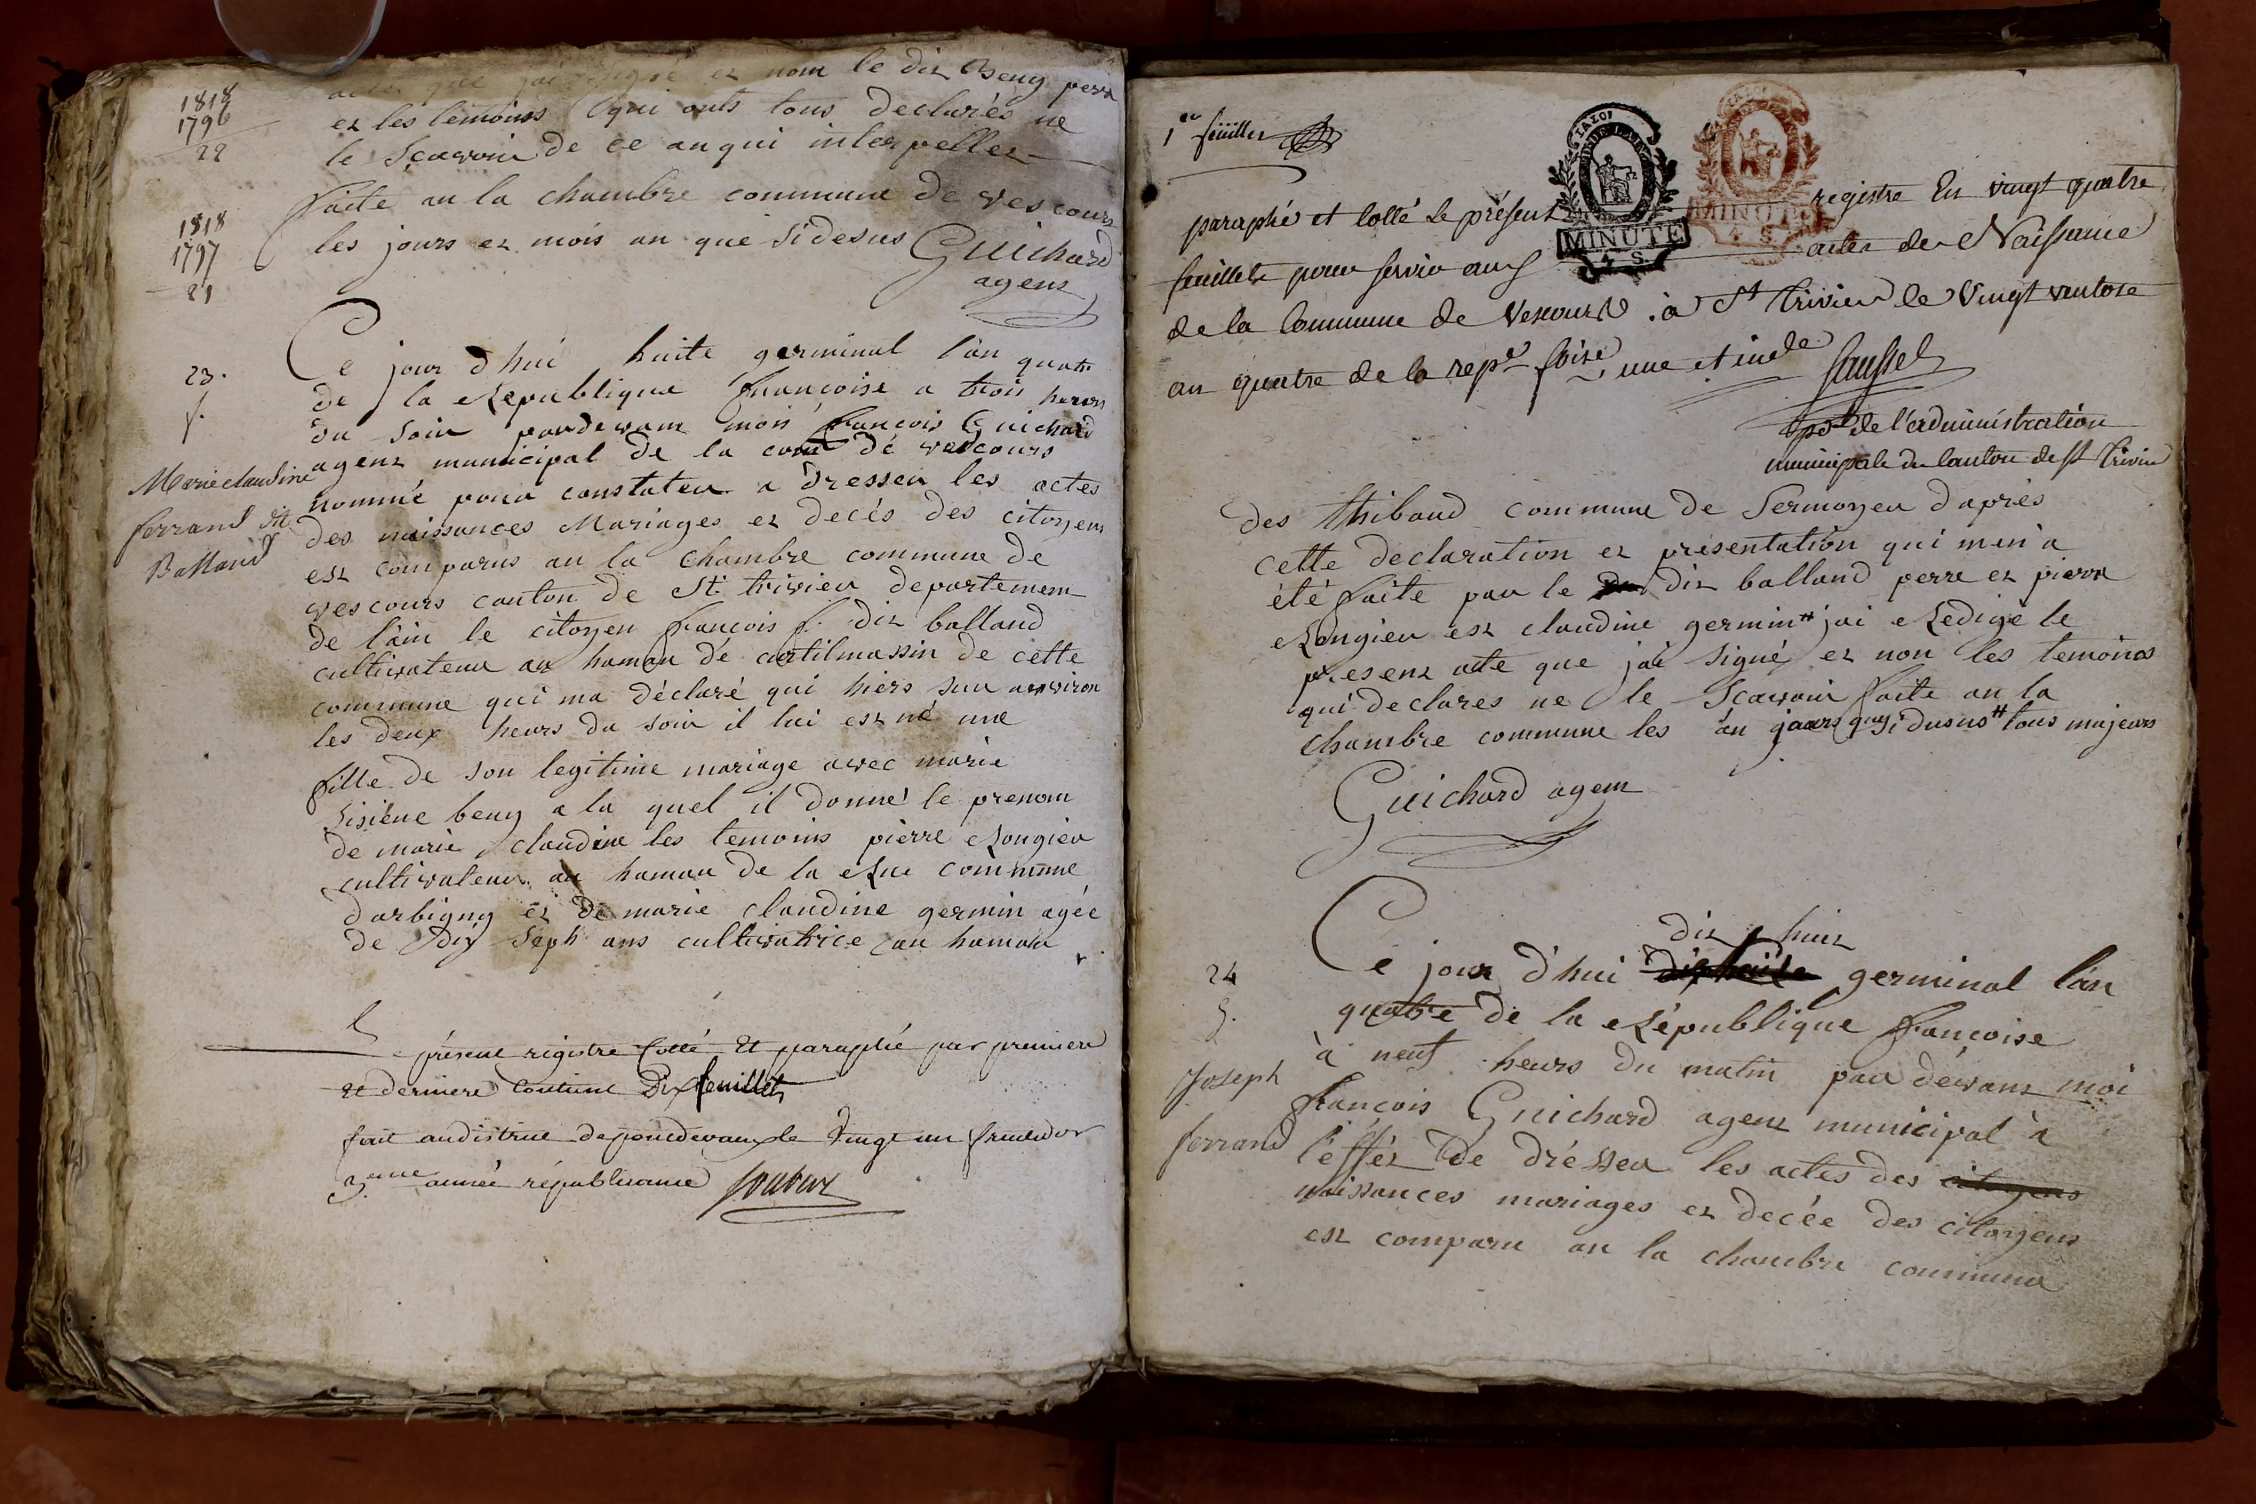 1818
1796
22
1818
1797
21
acte que jai signé et nom le dit Beny perre
et les temoins qui onts tous declarés ne
le scavoir de ce anqui interpeller
faite an la chambre commune de vescours
les jours et mois an que sidesus Guichard
agent
23.
f.
Marie claudine
ferrand dit
Balland
Ce jour d'hui huite germinal l'an quatre
de la Republique françoise a trois heures
du soir pardevant moi françois Guichard
agent municipal de la cone de vescours
nommé pour constater a dresser les actes
des naissances Mariages et decés des citoyens
est comparus an la chambre commune de
vescours canton de St trivier departement
de l'ain le citoyen françois f. dit balland
cultivateur au hamau de curtilmassin de cette
commune qui ma déclaré qui hiers sur anviron
les deux heurs du soir il lui est né une
fille de son legitime mariage avec marie
beny a la quel il donné le prenom
de marie claudine les temoins pierre Rongier
cultivateur au hamau de la Rue commune
darbigny et de marie claudine germin agée
de Dix Seph ans cultivatrice au hamau
Le présent registre Cotté et paraphé par premiere
et derniere Contient Dix feuillets
fait audistrict depontdevaux le vingt un fructidor
3.eme année républicaine
1er feuillet
paraphé et Cotté le présent registre En vingt quatre
feuillets pour servir aux actes de Naissance
de la Commune de Vescours. à St Trivier le Vingt ventose
an quatre de la repe. foise, une et inde
MINUTE
4 S.
MINUTE
4 S.
pdt de l'administration
municipale du Canton de St Trivier
des thibaud commune de Sermoyer d'aprés
cette declaration et présentation qui men a
été faite par le dit balland perre et pierre
Rongier est claudine germin # jai Redigé le
present acte que jai signé et non les temoins
qui declares ne le Scavoir faite an la
chambre commune les an jours que sidusus # tous majeurs
Guichard agent
24
g.
Joseph
ferrand
dix huit
Ce jour d'hui dix huite germinal l'an
quatre de la République françoise
à neuf heurs du matin par dévant moi
françois Guichard agent municipal à
l'éffét de drésser les actes des citoyens
naissances mariages et decée des citoyens
est comparu an la chambre commune